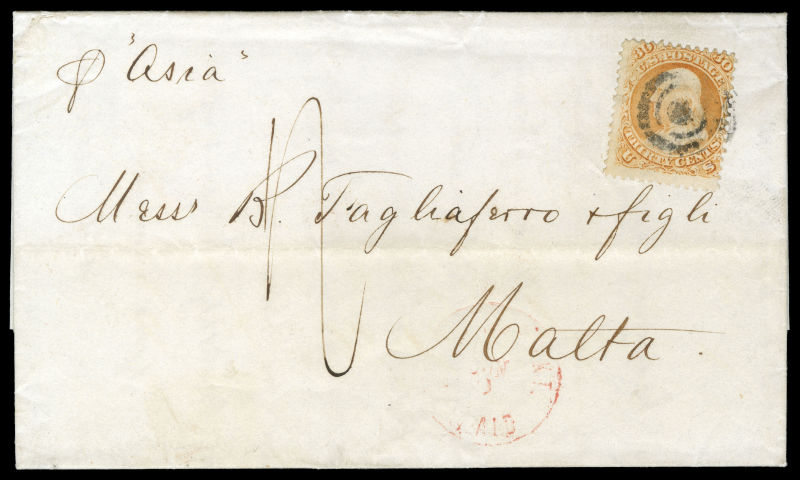 p "Asia"
30 30
U.S. POSTAGE
THIRTY CENTS
U S
Messrs B. Tagliaferro & figli
Malta.